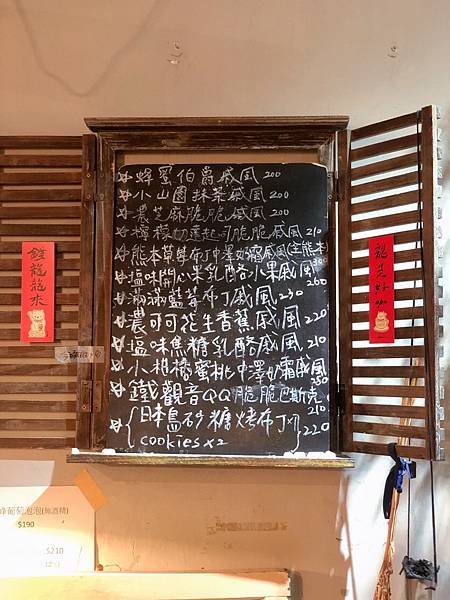 蜂蜜伯爵戚風 200
小山園抹茶戚風 200
濃芝麻脆脆戚風 200
檸檬奶蓋起司脆脆戚風 210
熊本草莓布丁中澤奶霜戚風(含熊本)
280
塩味開心果乳酪小果戚風
260
滿滿藍莓布丁戚風 230
濃可可花生香蕉戚風 220
塩味焦糖乳酪戚風 210
小柑橘蜜桃中澤奶霜戚風
250
鐵觀音QQ脆脆巴斯克
210
日本島砂糖烤布丁×1
cookies×2 220
龍龍來
龍芝好咖
蜂葡萄泡泡(無酒精)
$190
$210
12%